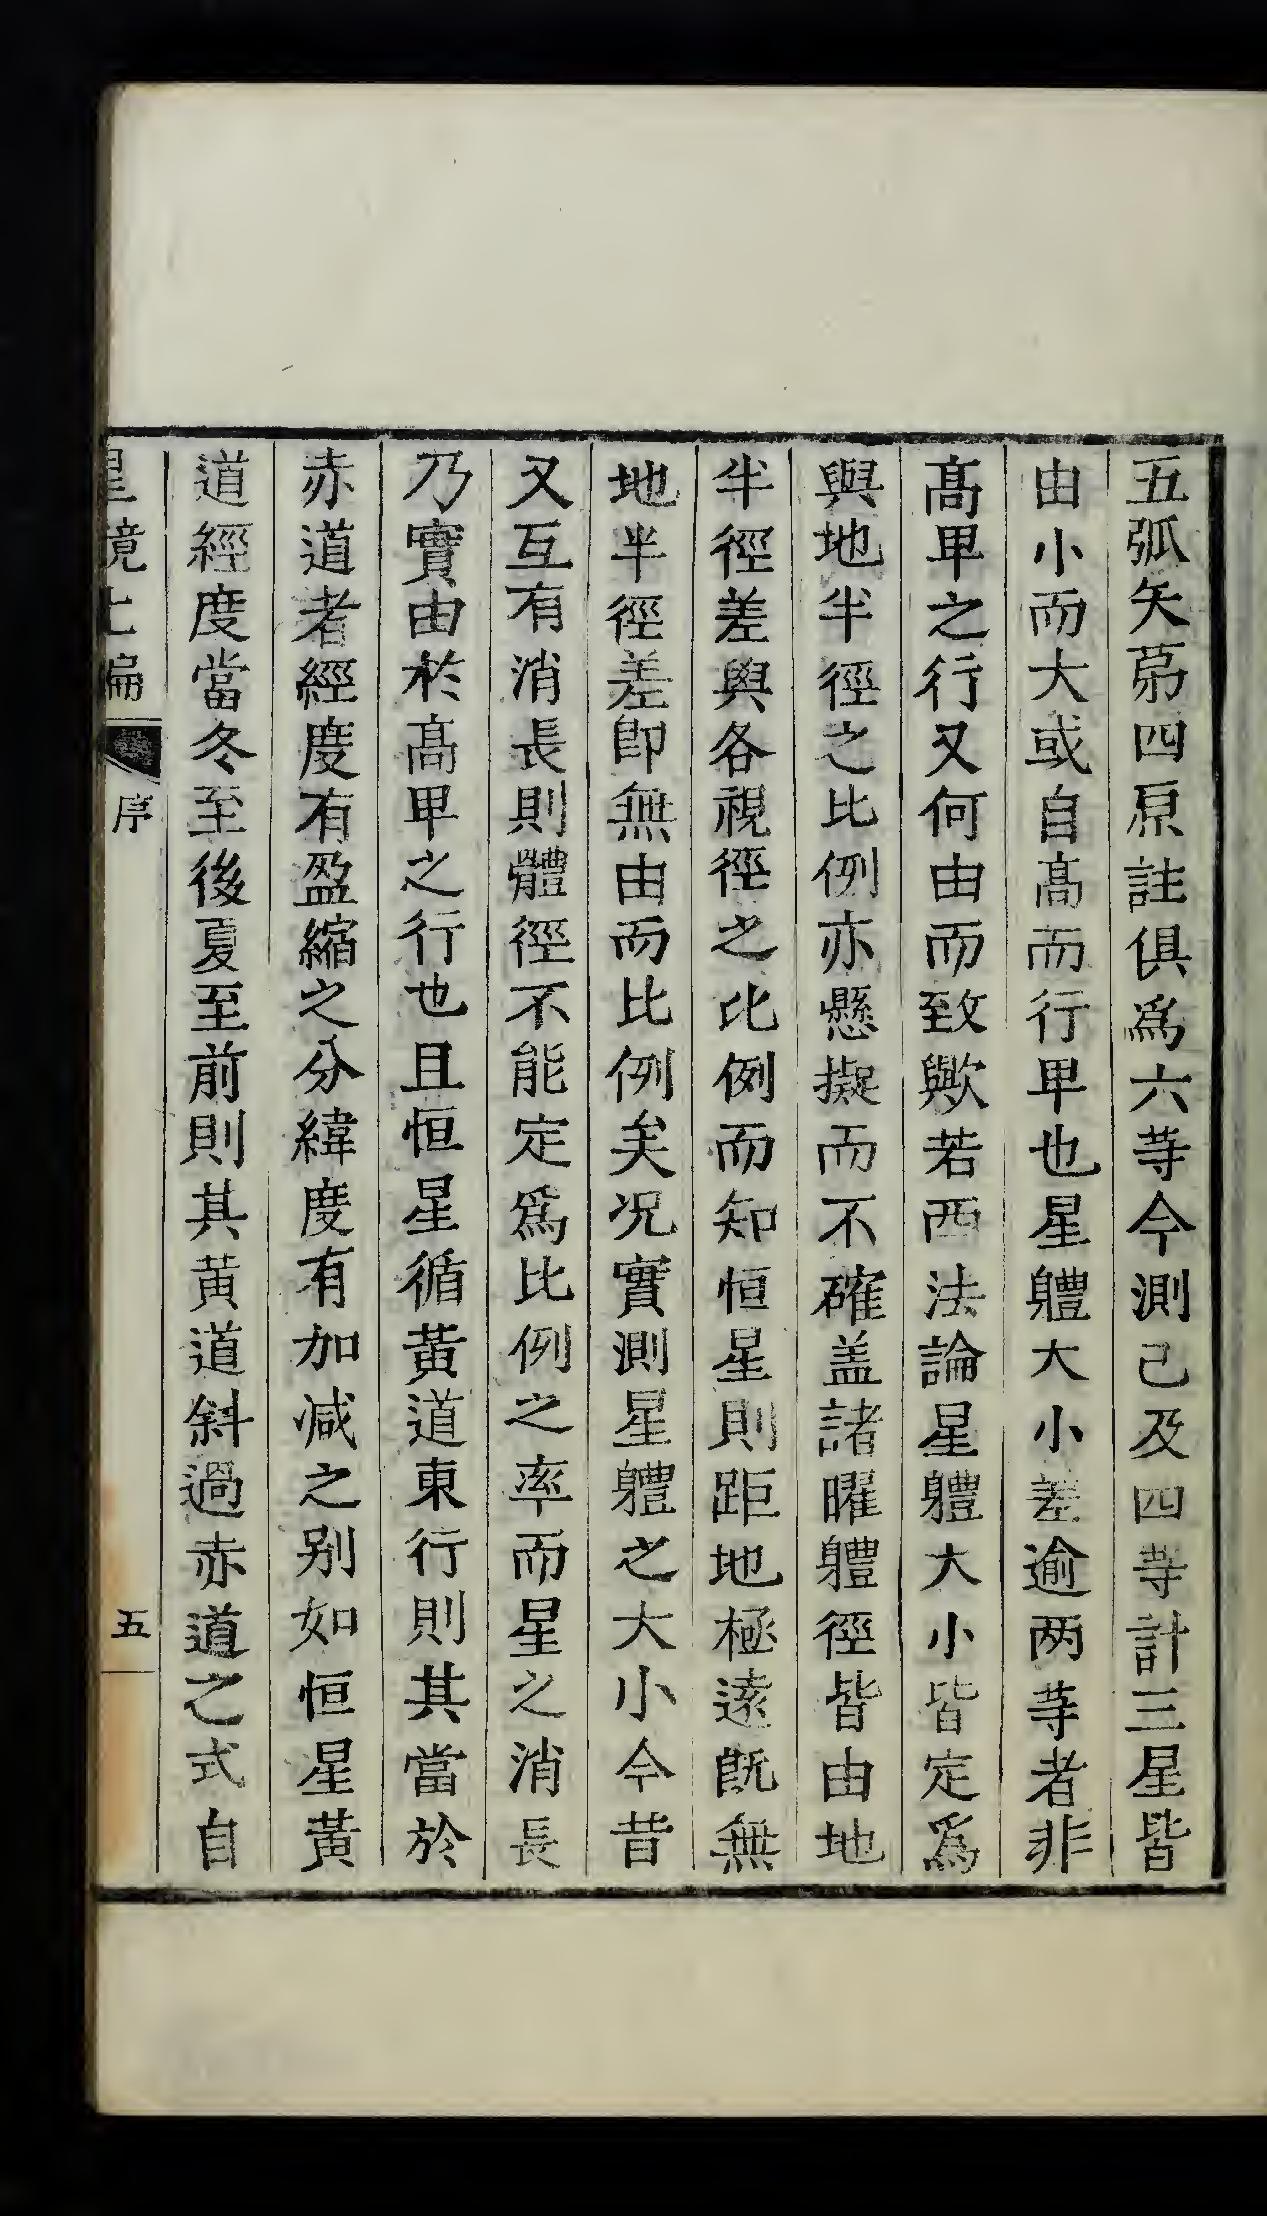 五弧矢苐四原註俱爲六䓁今測己及四䓁計三星皆
由小而大或自髙而行甲也星軆大小差逾两䓁者非
髙甲之行又何由而致歟若西法論星軆大小皆定爲
與地半徑之比例亦懸擬而不確盖諸曜軆徑皆由地
半徑差與各視徑之比例而知恒星則距地極遠既無
地半徑差即無由而比例矣况實測星軆之大小今昔
又互有消長則體徑不能定爲比例之率而星之消長
乃實由於髙甲之行也且恒星循黃道東行則其當於
赤道者經度有盈縮之分緯度有加减之别如恒星黃
道經度當冬至後夏至前則其黄道斜過赤道之式自
星鏡上編
序
五